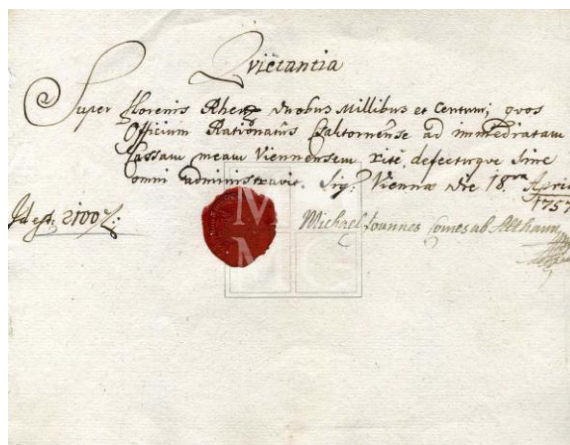 Quietantia
Super florenis Rhen duobus Millibus et Centum; quos
Officium Rationatus Csaktornense ad immediatam
Cassam meam Viennensem rite, defectuque sine
omni administravit. Sig: Viennæ die 18va Aprilis
1757
Id est 2100 f:
Michael Joannes Comes ab Althann
M M
M C